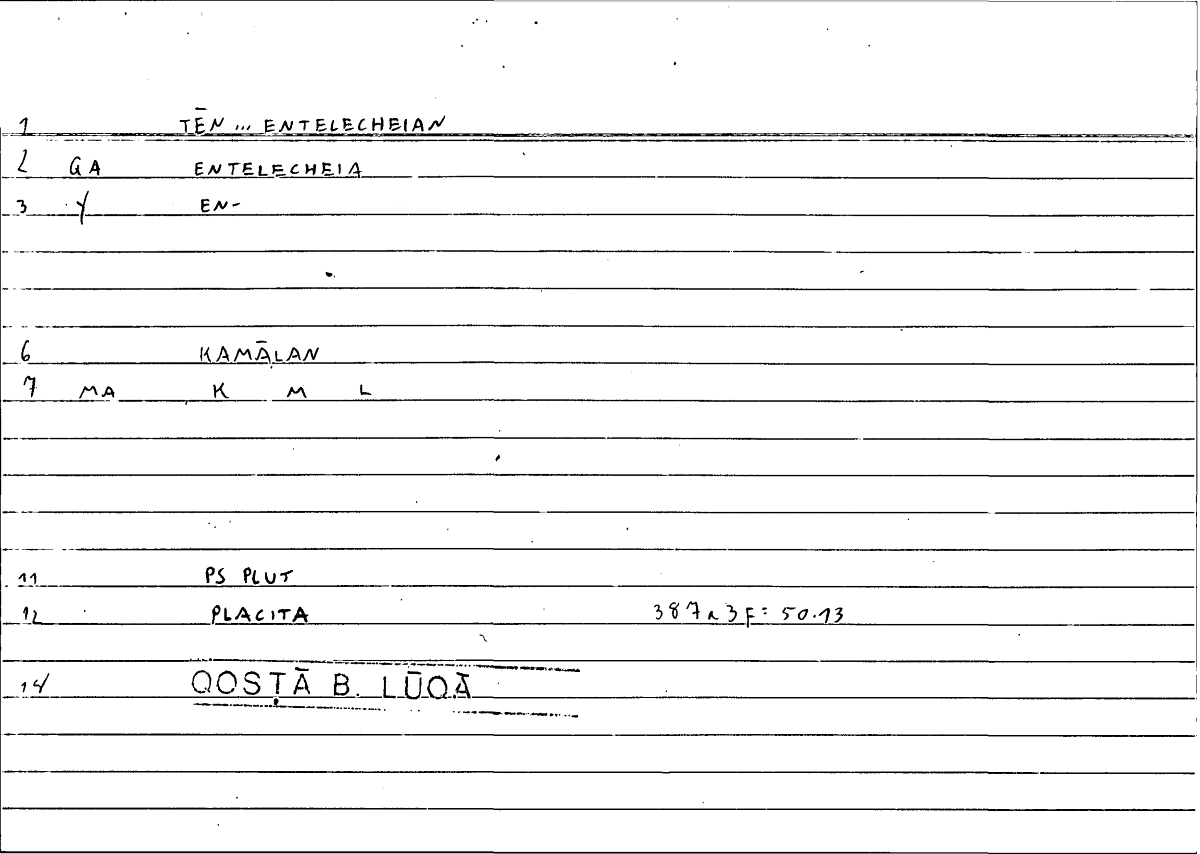 1 TĒN ... ENTELECHEIAN
2 GA ENTELECHEIA
3 Y EN-
6 KAMĀLAN
7 MA K M L
11 PS PLUT
12 PLACITA 387a3F= 50.13
14 QOSṬĀ B. LŪQĀ